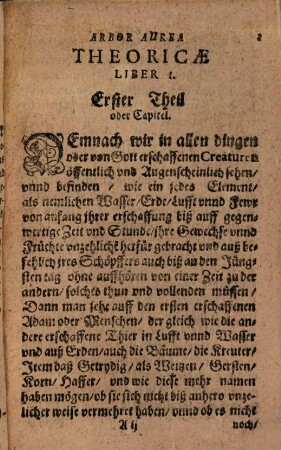 ARBOR AUREA 2
THEORICÆ
LIBER 1.
Erster Theil
oder Capitel.
DEmnach wir in allen dingen
oder von Gott erschaffenen Creaturen
öffentlich vnd Augenscheinlich sehen/
vnnd befinden / wie ein jedes Element/
als nemlichen Wasser/Erde/Lufft vnnd Fewr
von anfang jhrer erschaffung biß auff gegen-
wertige Zeit vnd Stunde/jhre Gewechse vnnd
Früchte vnzehlicht herfür gebracht vnd auß be-
fehlich jres Schöpffers auch biß an den Jüng-
sten tag ohne auffhören von einer Zeit zu der
andern/solchs thun vnd vollenden müssen/
Dann man sehe auff den ersten erschaffenen
Adam oder Menschen/ der gleich wie die an-
dere erschaffene Thier in Lufft vnnd Wasser
vnd auß Erden/auch die Bäume/die Kreuter/
Item daß Getrydig/als Weitzen/ Gersten/
Korn/Haffer/ vnd wie diese mehr namen
haben mögen/ob sie sich nicht biß anhero vnze-
licher weise vermehret haben/vnnd ob es nicht
A ij noch/